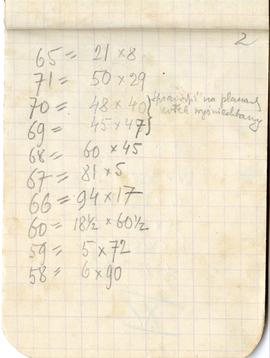 2
65 = 21 x 8
71 = 50 x 29
70 = 48 x 40
69 = 45 x 47
68 = 60 x 45
67 = 81 x 5
66 = 94 x 17
60 = 18 1/2 x 60 1/2
59 = 5 x 72
58 = 6 x 90
sprawdzić na planach